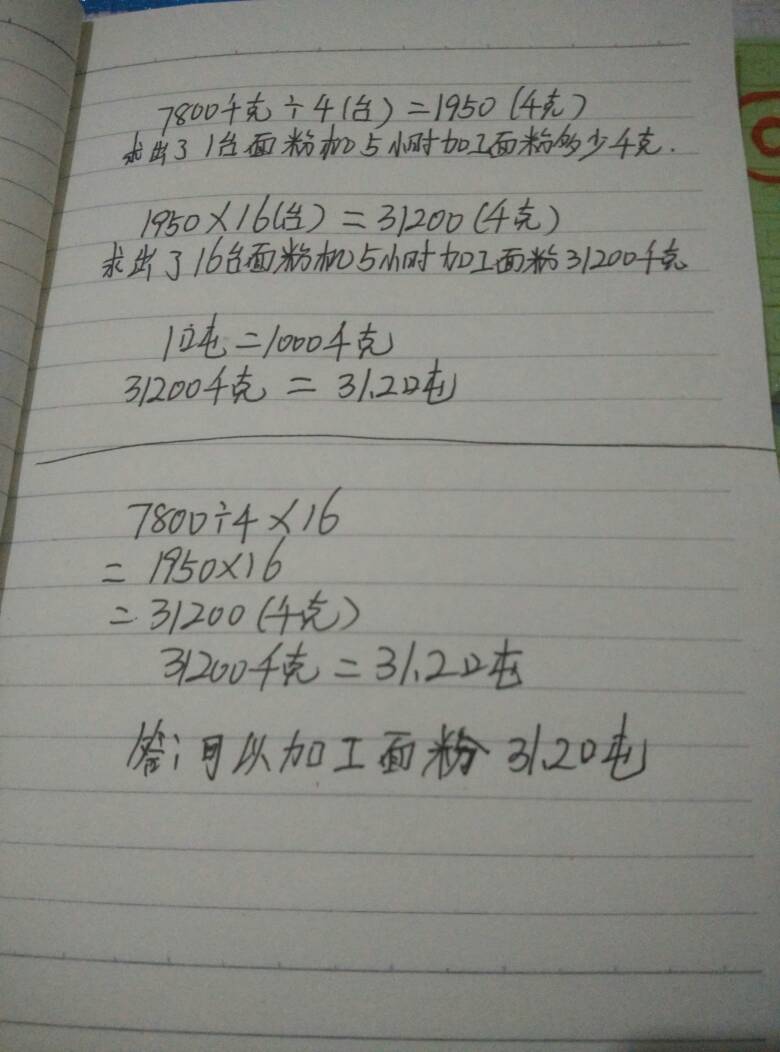 7800千克÷4(台)=1950(千克)
求出了1台面粉机5小时加工面粉多少千克.
1950×16(台)=31200(千克)
求出了16台面粉机5小时加工面粉31200千克
1吨=1000千克
31200千克=31.2吨
7800÷4×16
=1950×16
=31200(千克)
31200千克=31.2吨
答:可以加工面粉31.2吨